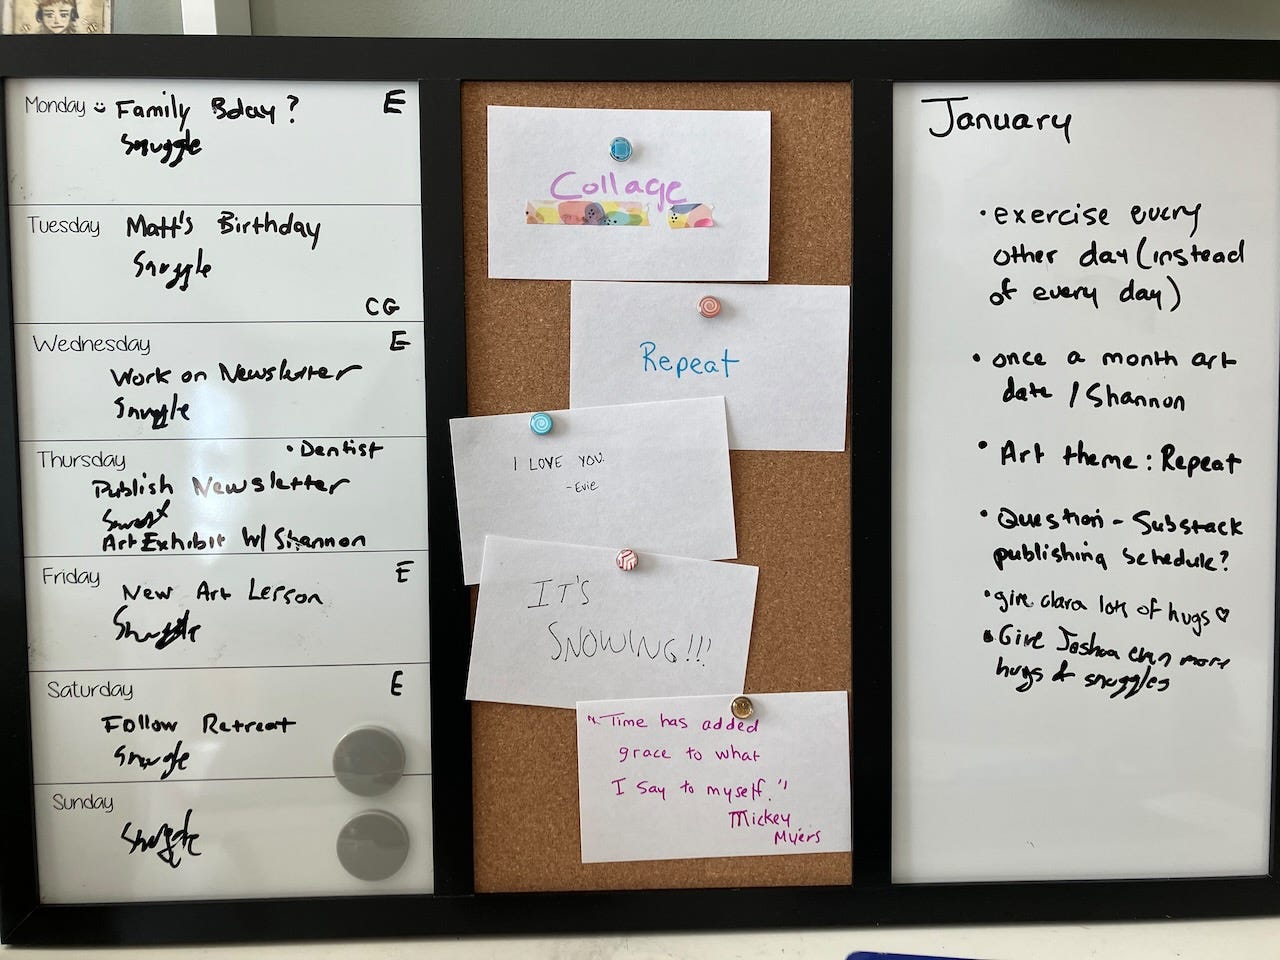 Monday Family Bday? E
Snuggle
Tuesday Matt's Birthday
Snuggle
CG
Wednesday E
Work on Newsletter
Snuggle
Thursday • Dentist
Publish Newsletter
Art Exhibit W/ Shannon
Friday E
New Art Lesson
Snuggle
Saturday E
Follow Retreat
Snuggle
Sunday
Snuggle
Collage
Repeat
I LOVE YOU.
-Evie
IT'S
SNOWING!!!
"Time has added
grace to what
I say to myself."
Mickey
Myers
January
• exercise every
other day (instead
of every day)
• once a month art
date / Shannon
• Art theme: Repeat
• Question - Substack
publishing schedule?
• give clara lots of hugs ♡
• Give Joshua even more
hugs & snuggles